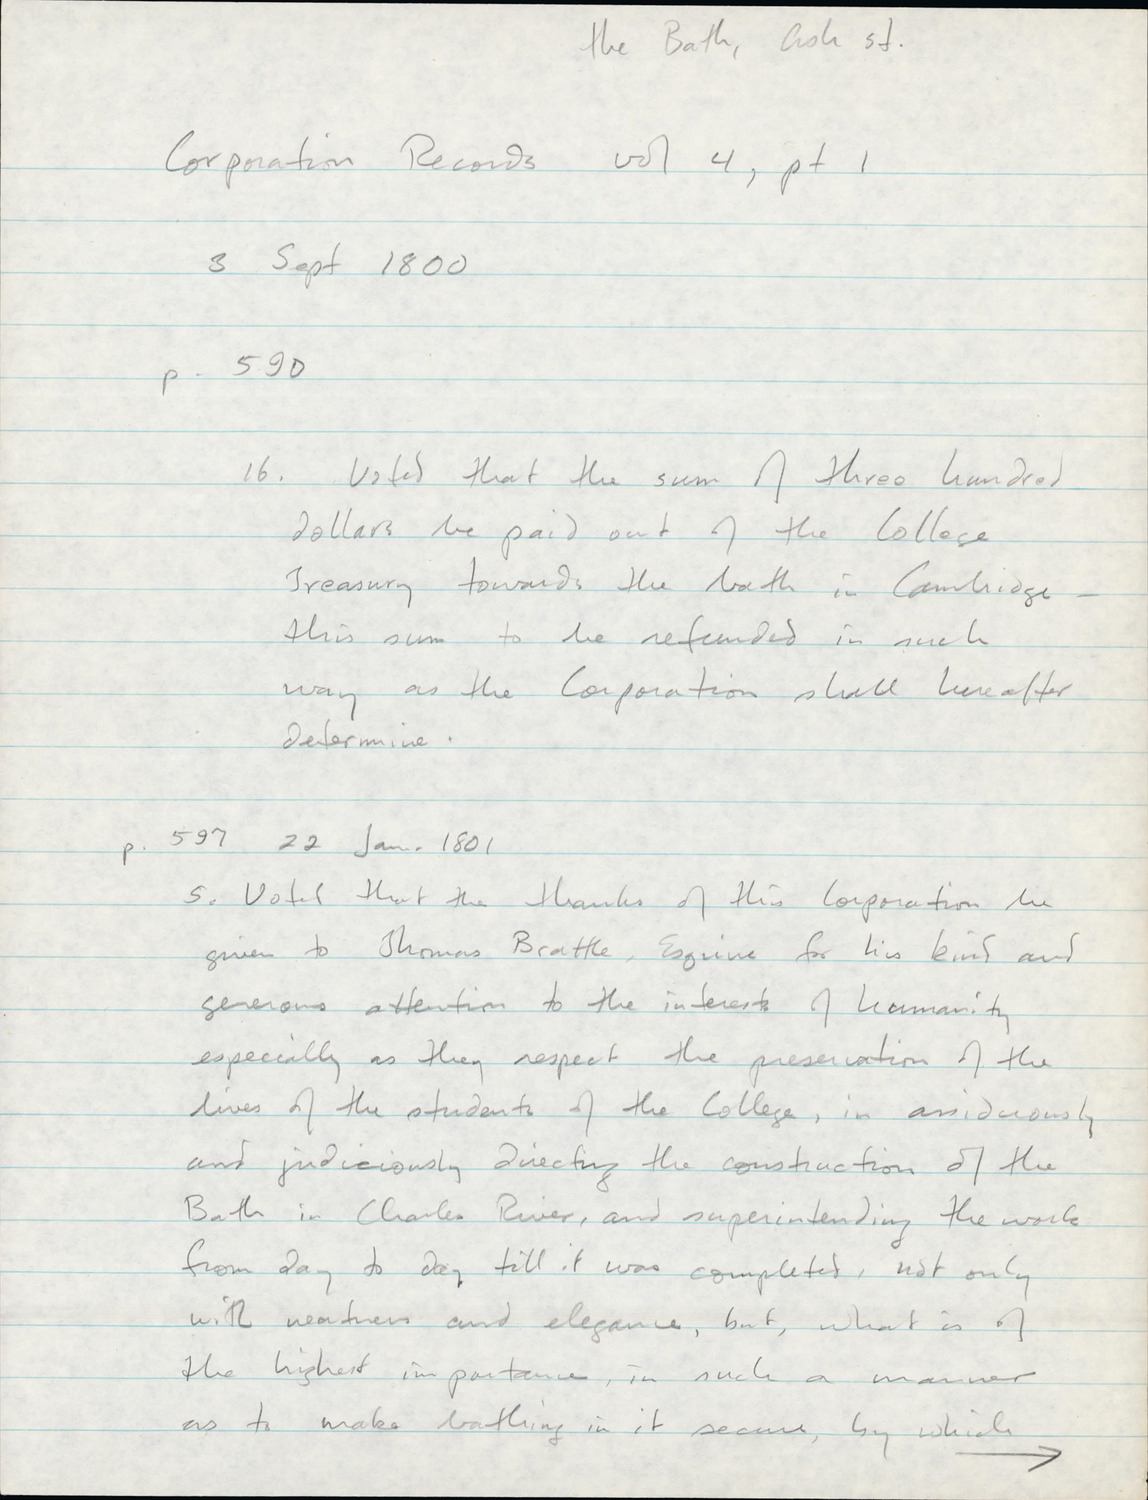 the Bath, Ash st.
Corporation Records vol 4, pt 1
3 Sept 1800
p. 590
16. Voted that the sum of three hundred
dollars be paid out of the College
Treasury towards the bath in Cambridge -
this sum to be refunded in such
way as the Corporation shall hereafter
determine.
p. 597 22 Jan. 1801
5. Voted that the thanks of this Corporation be
given to Thomas Brattle, Esquire for his kind and
generous attention to the interests of humanity
especially as they respect the preservation of the
lives of the students of the College, in assiduously
and judiciously directing the construction of the
Bath in Charles River, and superintending the work
from day to day till it was completed, not only
with neatness and elegance, but, what is of
the highest importance, in such a manner
as to make bathing in it secure, by which